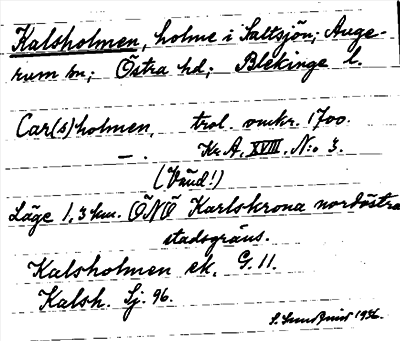 Kalsholmen, holme i Saltsjön; Auge-
rum sn; Östra hd; Blekinge l.
Car(s)holmen, trol. omkr. 1700.
— . Kr. A. XVIII. N:o 3.
(Vänd!)
Läge 1,3 km. ÖNÖ Karlskrona nordöstra
stadsgräns.
Kalsholmen ek. G. 11.
Kalsh. Sj. 96.
S. Sundquist 1936.